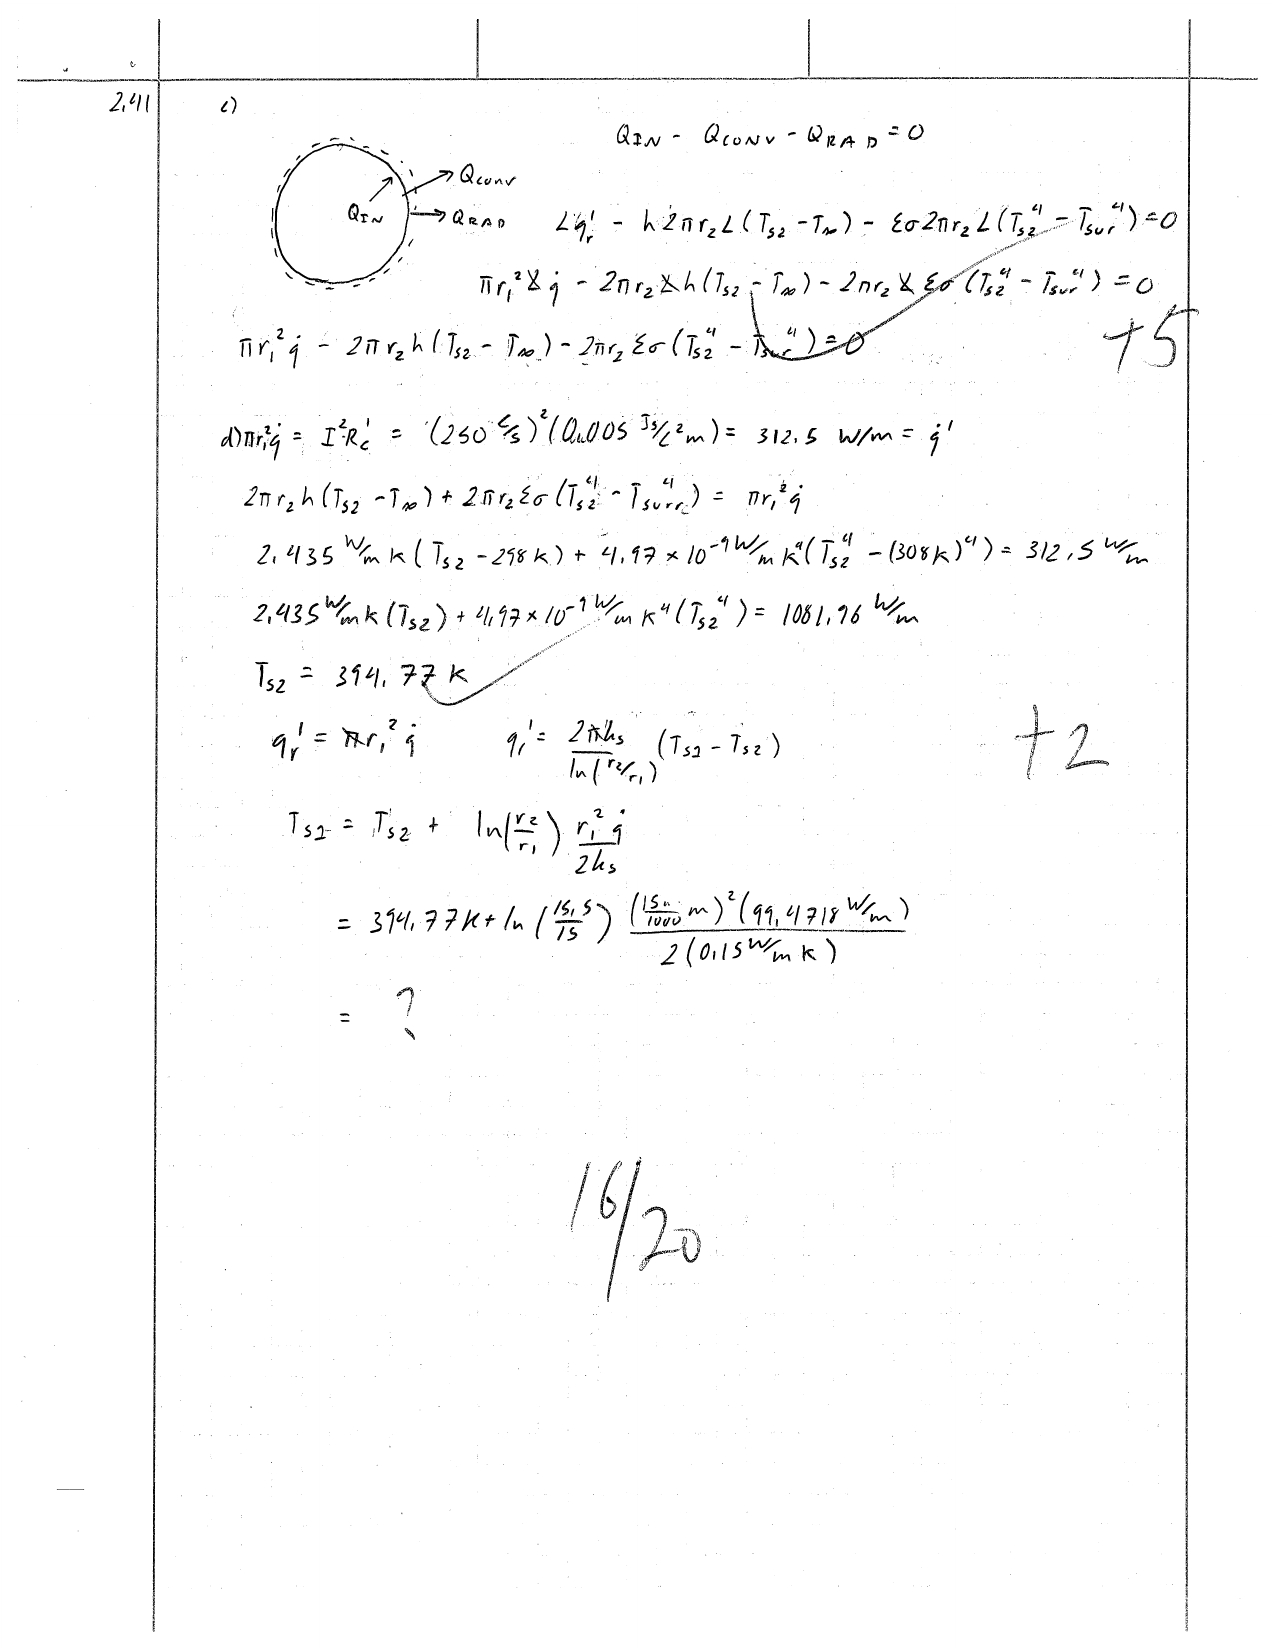 2.41 c)
Q_IN - Q_CONV - Q_RAD = 0
Q_CONV
Q_IN → Q_RAD
Lq_r' - h2πr₂L(T_s2 - T_∞) - εσ2πr₂L(T_s2⁴ - T_sur⁴) = 0
πr₁²L q̇ - 2πr₂L h(T_s2 - T_∞) - 2πr₂L εσ(T_s2⁴ - T_sur⁴) = 0
πr₁²q̇ - 2πr₂h(T_s2 - T_∞) - 2πr₂εσ(T_s2⁴ - T_sur⁴) = 0
+5
d) πr₁²q̇ = I²R_c' = (250 C/s)²(0.005 Js/C²m) = 312.5 W/m = q̇'
2πr₂h(T_s2 - T_∞) + 2πr₂εσ(T_s2⁴ - T_surr⁴) = πr₁²q̇
2.435 W/mK(T_s2 - 298K) + 4.97×10⁻⁹ W/mK⁴(T_s2⁴ - (308K)⁴) = 312.5 W/m
2.435 W/mK(T_s2) + 4.97×10⁻⁹ W/mK⁴(T_s2⁴) = 1081.96 W/m
T_s2 = 394.77 K
q_r' = πr₁²q̇ q_r' = 2πk_s/ln(r₂/r₁) (T_s1 - T_s2)
+2
T_s1 = T_s2 + ln(r₂/r₁) r₁²q̇/2k_s
= 394.77K + ln(15.5/15) (15/1000 m)²(99.4718 W/m)/2(0.15 W/mK)
= ?
16/20